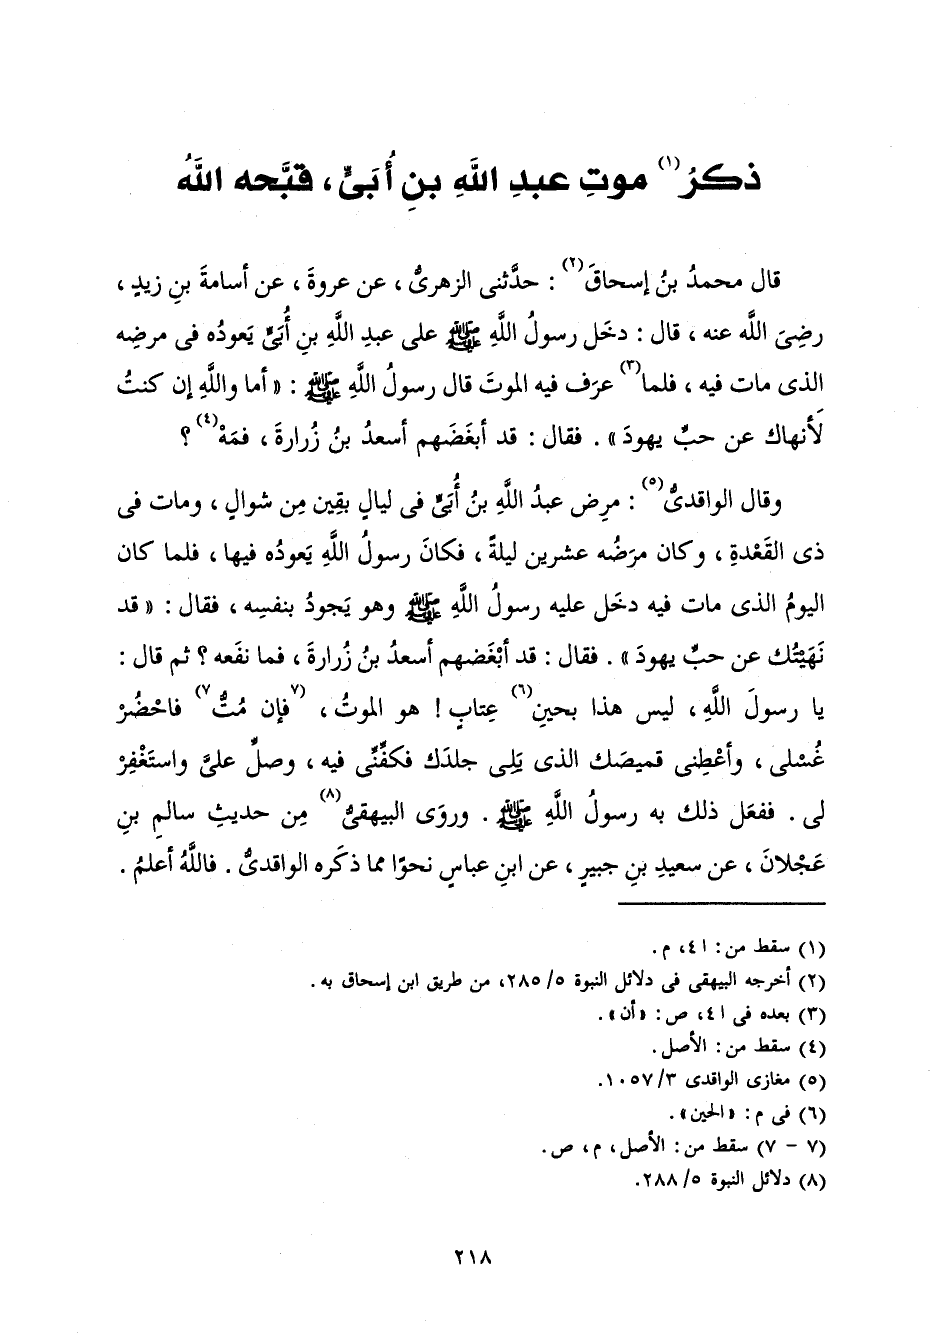 ذكرُ(١) موتِ عبدِ اللَّهِ بنِ أُبَىٍّ، قبَّحه اللَّهُ
قال محمدُ بنُ إسحاقَ(٢) : حدَّثنى الزهرىُّ ، عن عروةَ ، عن أسامةَ بنِ زيدٍ ،
رضِىَ اللَّه عنه ، قال : دخَل رسولُ اللَّهِ ﷺ على عبدِ اللَّهِ بنِ أُبَىٍّ يَعودُه فى مرضِه
الذى مات فيه ، فلما(٣) عرَف فيه الموتَ قال رسولُ اللَّهِ ﷺ : « أما واللَّهِ إن كنتُ
لَأنهاك عن حبِّ يهودَ » . فقال : قد أبغَضَهم أسعدُ بنُ زُرارةَ ، فمَهْ(٤) ؟
وقال الواقدىُّ(٥) : مرِض عبدُ اللَّهِ بنُ أُبَىٍّ فى ليالٍ بقِين مِن شوالٍ ، ومات فى
ذى القَعْدةِ ، وكان مرَضُه عشرين ليلةً ، فكانَ رسولُ اللَّهِ يَعودُه فيها ، فلما كان
اليومُ الذى مات فيه دخَل عليه رسولُ اللَّهِ ﷺ وهو يَجودُ بنفسِه ، فقال : « قد
نَهَيْتُك عن حبِّ يهودَ » . فقال : قد أبْغَضهم أسعدُ بنُ زُرارةَ ، فما نفَعه ؟ ثم قال :
يا رسولَ اللَّهِ ، ليس هذا بحينِ(٦) عِتابٍ ! هو الموتُ ، (٧فإن مُتُّ٧) فاحْضُرْ
غُسْلى ، وأعْطِنى قميصَك الذى يَلِى جلدَك فكفِّنِّى فيه ، وصلِّ علىَّ واستَغْفِرْ
لى . ففعَل ذلك به رسولُ اللَّهِ ﷺ . وروَى البيهقىُّ(٨) مِن حديثِ سالمِ بنِ
عَجْلانَ ، عن سعيدِ بنِ جبيرٍ ، عن ابنِ عباسٍ نحوًا مما ذكَره الواقدىُّ . فاللَّهُ أعلمُ .
(١) سقط من : ا ٤، م .
(٢) أخرجه البيهقى فى دلائل النبوة ٥/ ٢٨٥، من طريق ابن إسحاق به .
(٣) بعده فى ا ٤، ص : «أن» .
(٤) سقط من : الأصل .
(٥) مغازى الواقدى ٣/ ١٠٥٧.
(٦) فى م : «الحين» .
(٧ - ٧) سقط من : الأصل ، م ، ص .
(٨) دلائل النبوة ٥/ ٢٨٨.
٢١٨